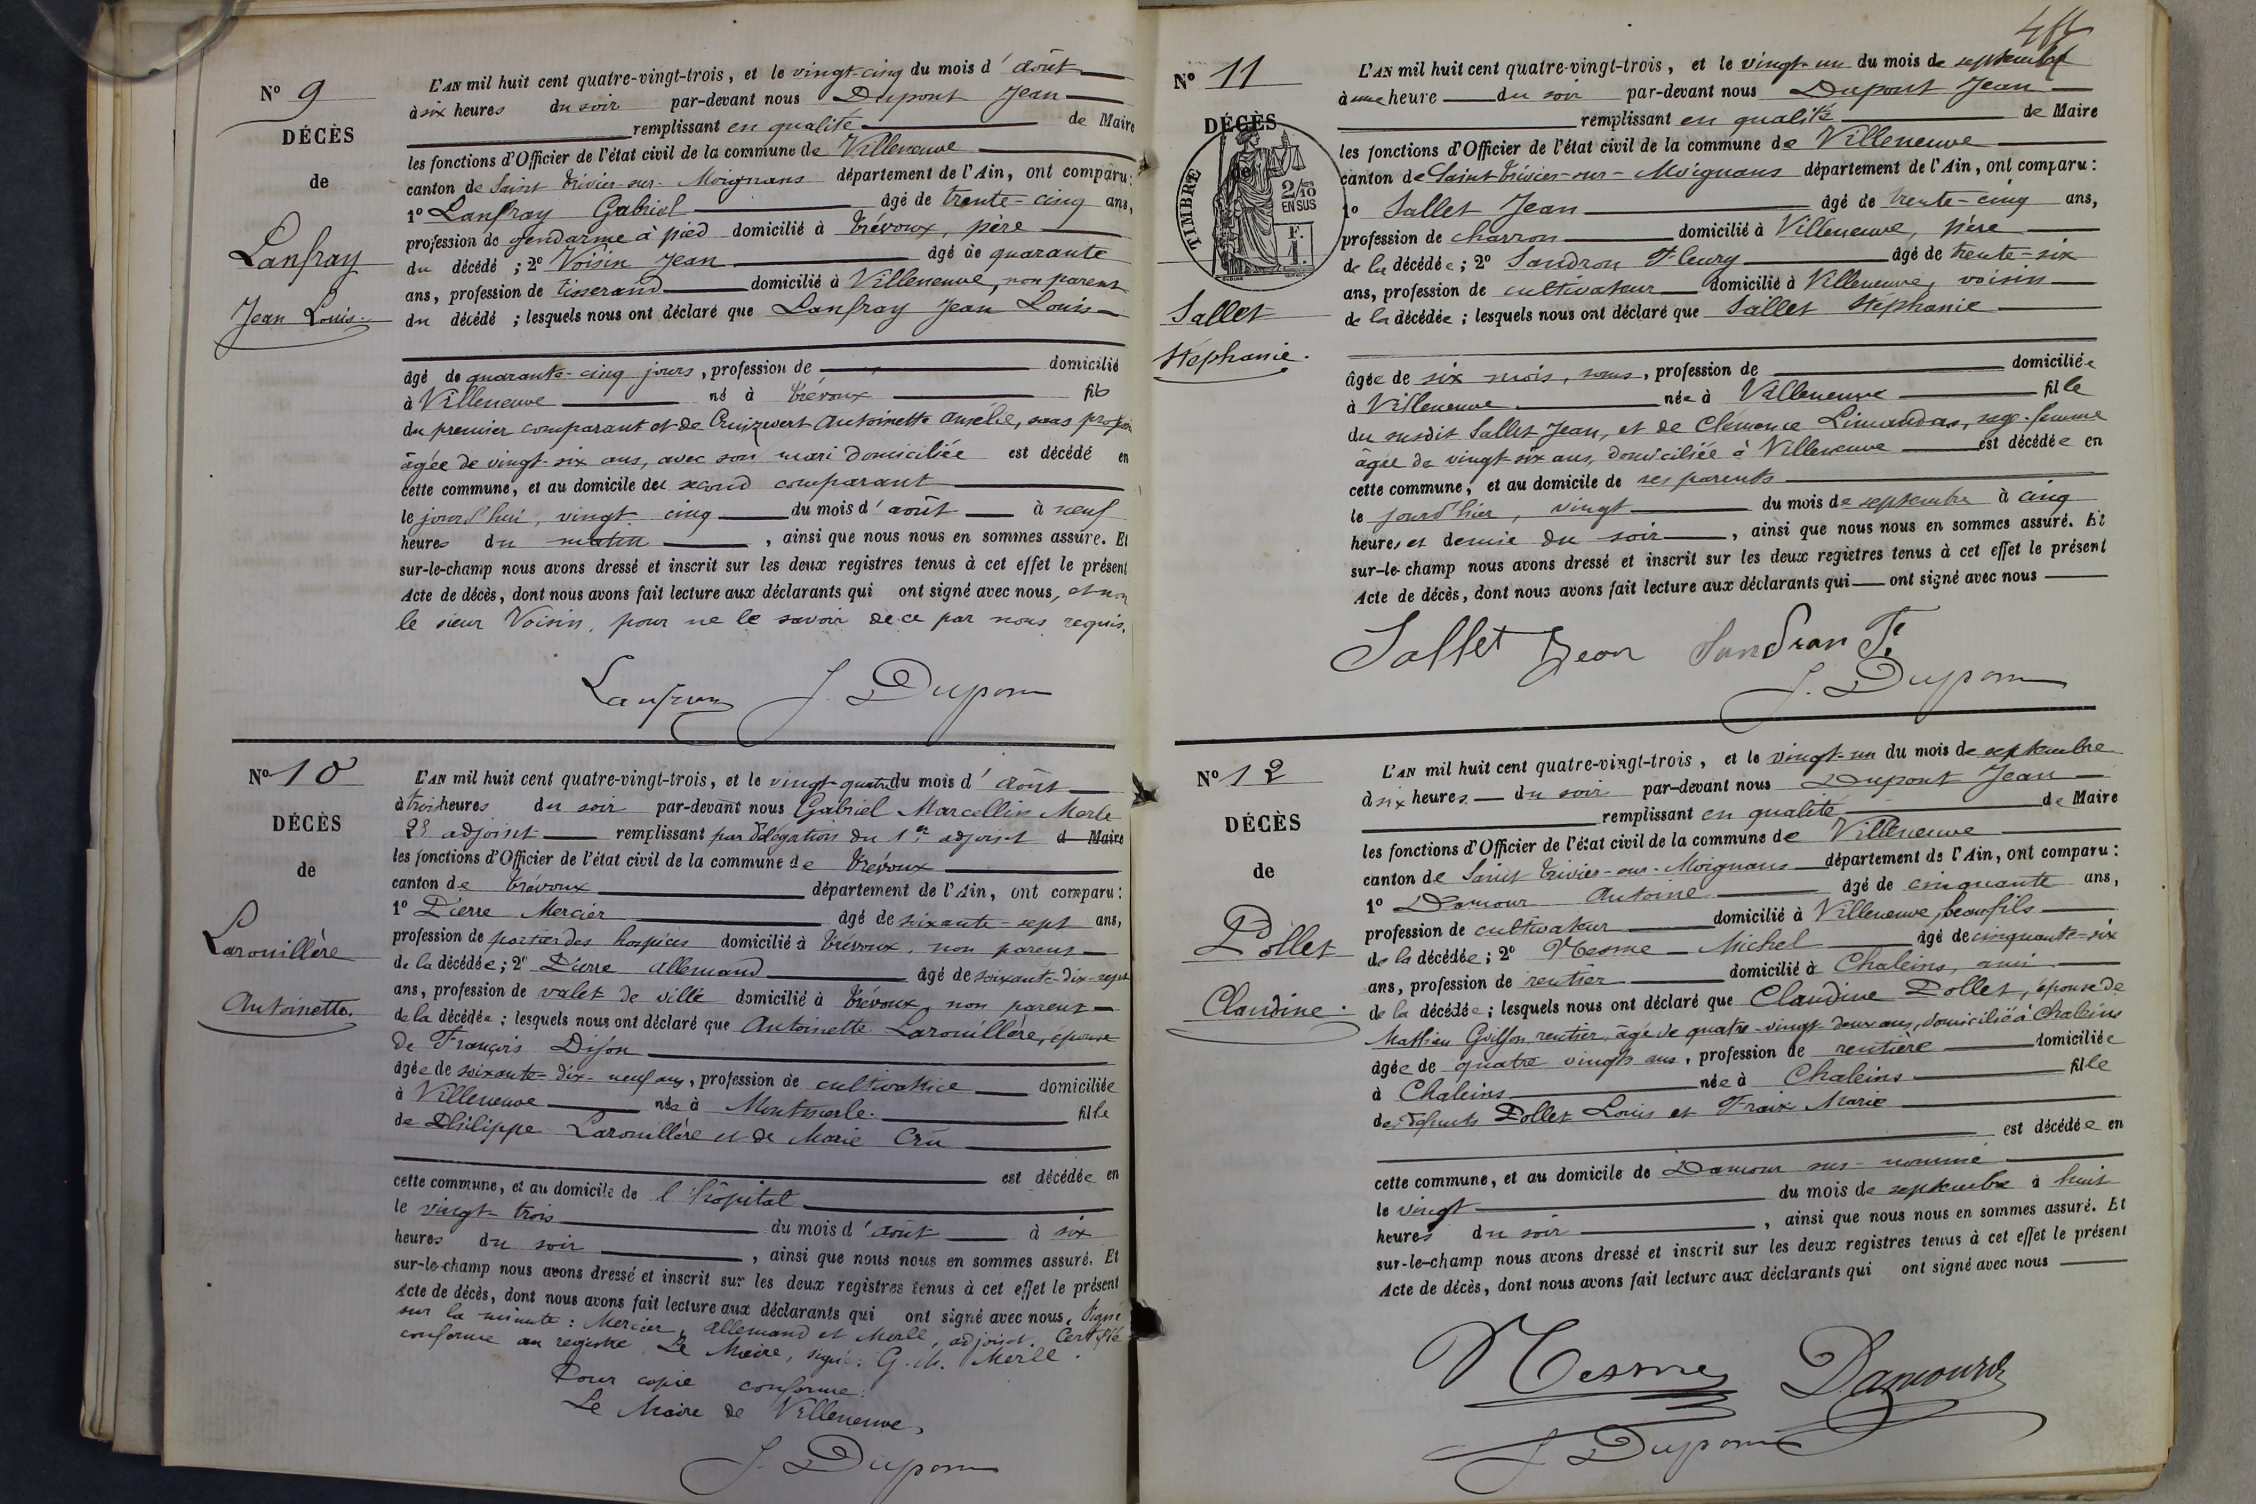 N° 9
DÉCÈS
de
Lanfray
Jean Louis.
L'AN mil huit cent quatre-vingt-trois, et le vingt-cinq du mois d'août
à six heures du soir par-devant nous Dupont Jean
remplissant en qualité de Maire
les fonctions d'Officier de l'état civil de la commune de Villeneuve
canton de Saint Trivier-sur-Moignans département de l'Ain, ont comparu:
1° Lanfray Gabriel âgé de trente-cinq ans,
profession de gendarme à pied domicilié à Trévoux, père
du décédé; 2° Voisin Jean âgé de quarante
ans, profession de tisserand domicilié à Villeneuve, non parent
du décédé; lesquels nous ont déclaré que Lanfray Jean Louis
âgé de quarante-cinq jours, profession de domicilié
à Villeneuve né à Trévoux fils
du premier comparant et de Antoinette Amélie, sans
âgée de vingt-six ans, avec son mari domiciliée est décédé en
cette commune, et au domicile du second comparant
le jourd'hui, vingt cinq du mois d'août à neuf
heures du matin, ainsi que nous nous en sommes assuré. Et
sur-le-champ nous avons dressé et inscrit sur les deux registres tenus à cet effet le présent
Acte de décès, dont nous avons fait lecture aux déclarants qui ont signé avec nous, et non
le sieur Voisin, pour ne le savoir de ce par nous requis.
Lanfray J. Dupont
N° 10
DÉCÈS
de
Larouillère
Antoinette.
L'AN mil huit cent quatre-vingt-trois, et le vingt-quatre du mois d'août
à trois heures du soir par-devant nous Gabriel Marcellin Merle
2e adjoint remplissant par délégation du 1er adjoint d Maire
les fonctions d'Officier de l'état civil de la commune de Trévoux
canton de Trévoux département de l'Ain, ont comparu:
1° Pierre Mercier âgé de soixante-sept ans,
profession de portier des hospices domicilié à Trévoux, non parent
de la décédée; 2° Pierre Allemand âgé de soixante-dix-sept
ans, profession de valet de ville domicilié à Trévoux, non parent
de la décédée; lesquels nous ont déclaré que Antoinette Larouillère, épouse
de François Dijon
âgée de soixante-dix-neuf ans, profession de cultivatrice domiciliée
à Villeneuve née à Montmerle. fille
de Philippe Larouillère et de Marie Cru
est décédée en
cette commune, et au domicile de l'hôpital
le vingt-trois du mois d'août à six
heures du soir, ainsi que nous nous en sommes assuré. Et
sur-le-champ nous avons dressé et inscrit sur les deux registres tenus à cet effet le présent
Acte de décès, dont nous avons fait lecture aux déclarants qui ont signé avec nous, Signé
sur la minute: Mercier, Allemand et Merle, adjoint. Certifié
conforme au registre. Le Maire, signé: G. M. Merle.
Pour copie conforme:
Le Maire de Villeneuve,
J. Dupont
N° 11
DÉCÈS
TIMBRE
2/10 EN SUS
F. 1.
Sallet
Stéphanie.
L'AN mil huit cent quatre-vingt-trois, et le vingt-un du mois de septembre
à une heure du soir par-devant nous Dupont Jean
remplissant en qualité de Maire
les fonctions d'Officier de l'état civil de la commune de Villeneuve
canton de Saint Trivier-sur-Moignans département de l'Ain, ont comparu:
1° Sallet Jean âgé de trente-cinq ans,
profession de charron domicilié à Villeneuve, père
de la décédée; 2° Sandron Fleury âgé de trente-six
ans, profession de cultivateur domicilié à Villeneuve, voisin
de la décédée; lesquels nous ont déclaré que Sallet Stéphanie
âgée de six mois, sans, profession de domiciliée
à Villeneuve née à Villeneuve fille
du susdit Sallet Jean, et de Clémence Limandas, sage-femme
âgée de vingt-six ans, domiciliée à Villeneuve est décédée en
cette commune, et au domicile de ses parents
le jourd'hier, vingt du mois de septembre à cinq
heures et demie du soir, ainsi que nous nous en sommes assuré. Et
sur-le-champ nous avons dressé et inscrit sur les deux registres tenus à cet effet le présent
Acte de décès, dont nous avons fait lecture aux déclarants qui ont signé avec nous
Sallet Jean Sandran F.
J. Dupont
N° 12
DÉCÈS
de
Pollet
Claudine.
L'AN mil huit cent quatre-vingt-trois, et le vingt-un du mois de septembre
à six heures du soir par-devant nous Dupont Jean
remplissant en qualité de Maire
les fonctions d'Officier de l'état civil de la commune de Villeneuve
canton de Saint Trivier-sur-Moignans département de l'Ain, ont comparu:
1° Damour Antoine âgé de cinquante ans,
profession de cultivateur domicilié à Villeneuve, beau fils
de la décédée; 2° Mesme Michel âgé de cinquante-six
ans, profession de rentier domicilié à Chaleins, ami
de la décédée; lesquels nous ont déclaré que Claudine Pollet, épouse de
Mathieu rentier, âgé de quatre-vingt-deux ans, domicilié à Chaleins
âgée de quatre vingts ans, profession de rentière domiciliée
à Chaleins née à Chaleins fille
des défunts Pollet Louis et Fraix Marie
est décédée en
cette commune, et au domicile de Damour sus-nommé
le vingt du mois de septembre à huit
heures du soir, ainsi que nous nous en sommes assuré. Et
sur-le-champ nous avons dressé et inscrit sur les deux registres tenus à cet effet le présent
Acte de décès, dont nous avons fait lecture aux déclarants qui ont signé avec nous
Mesme Damour
J. Dupont